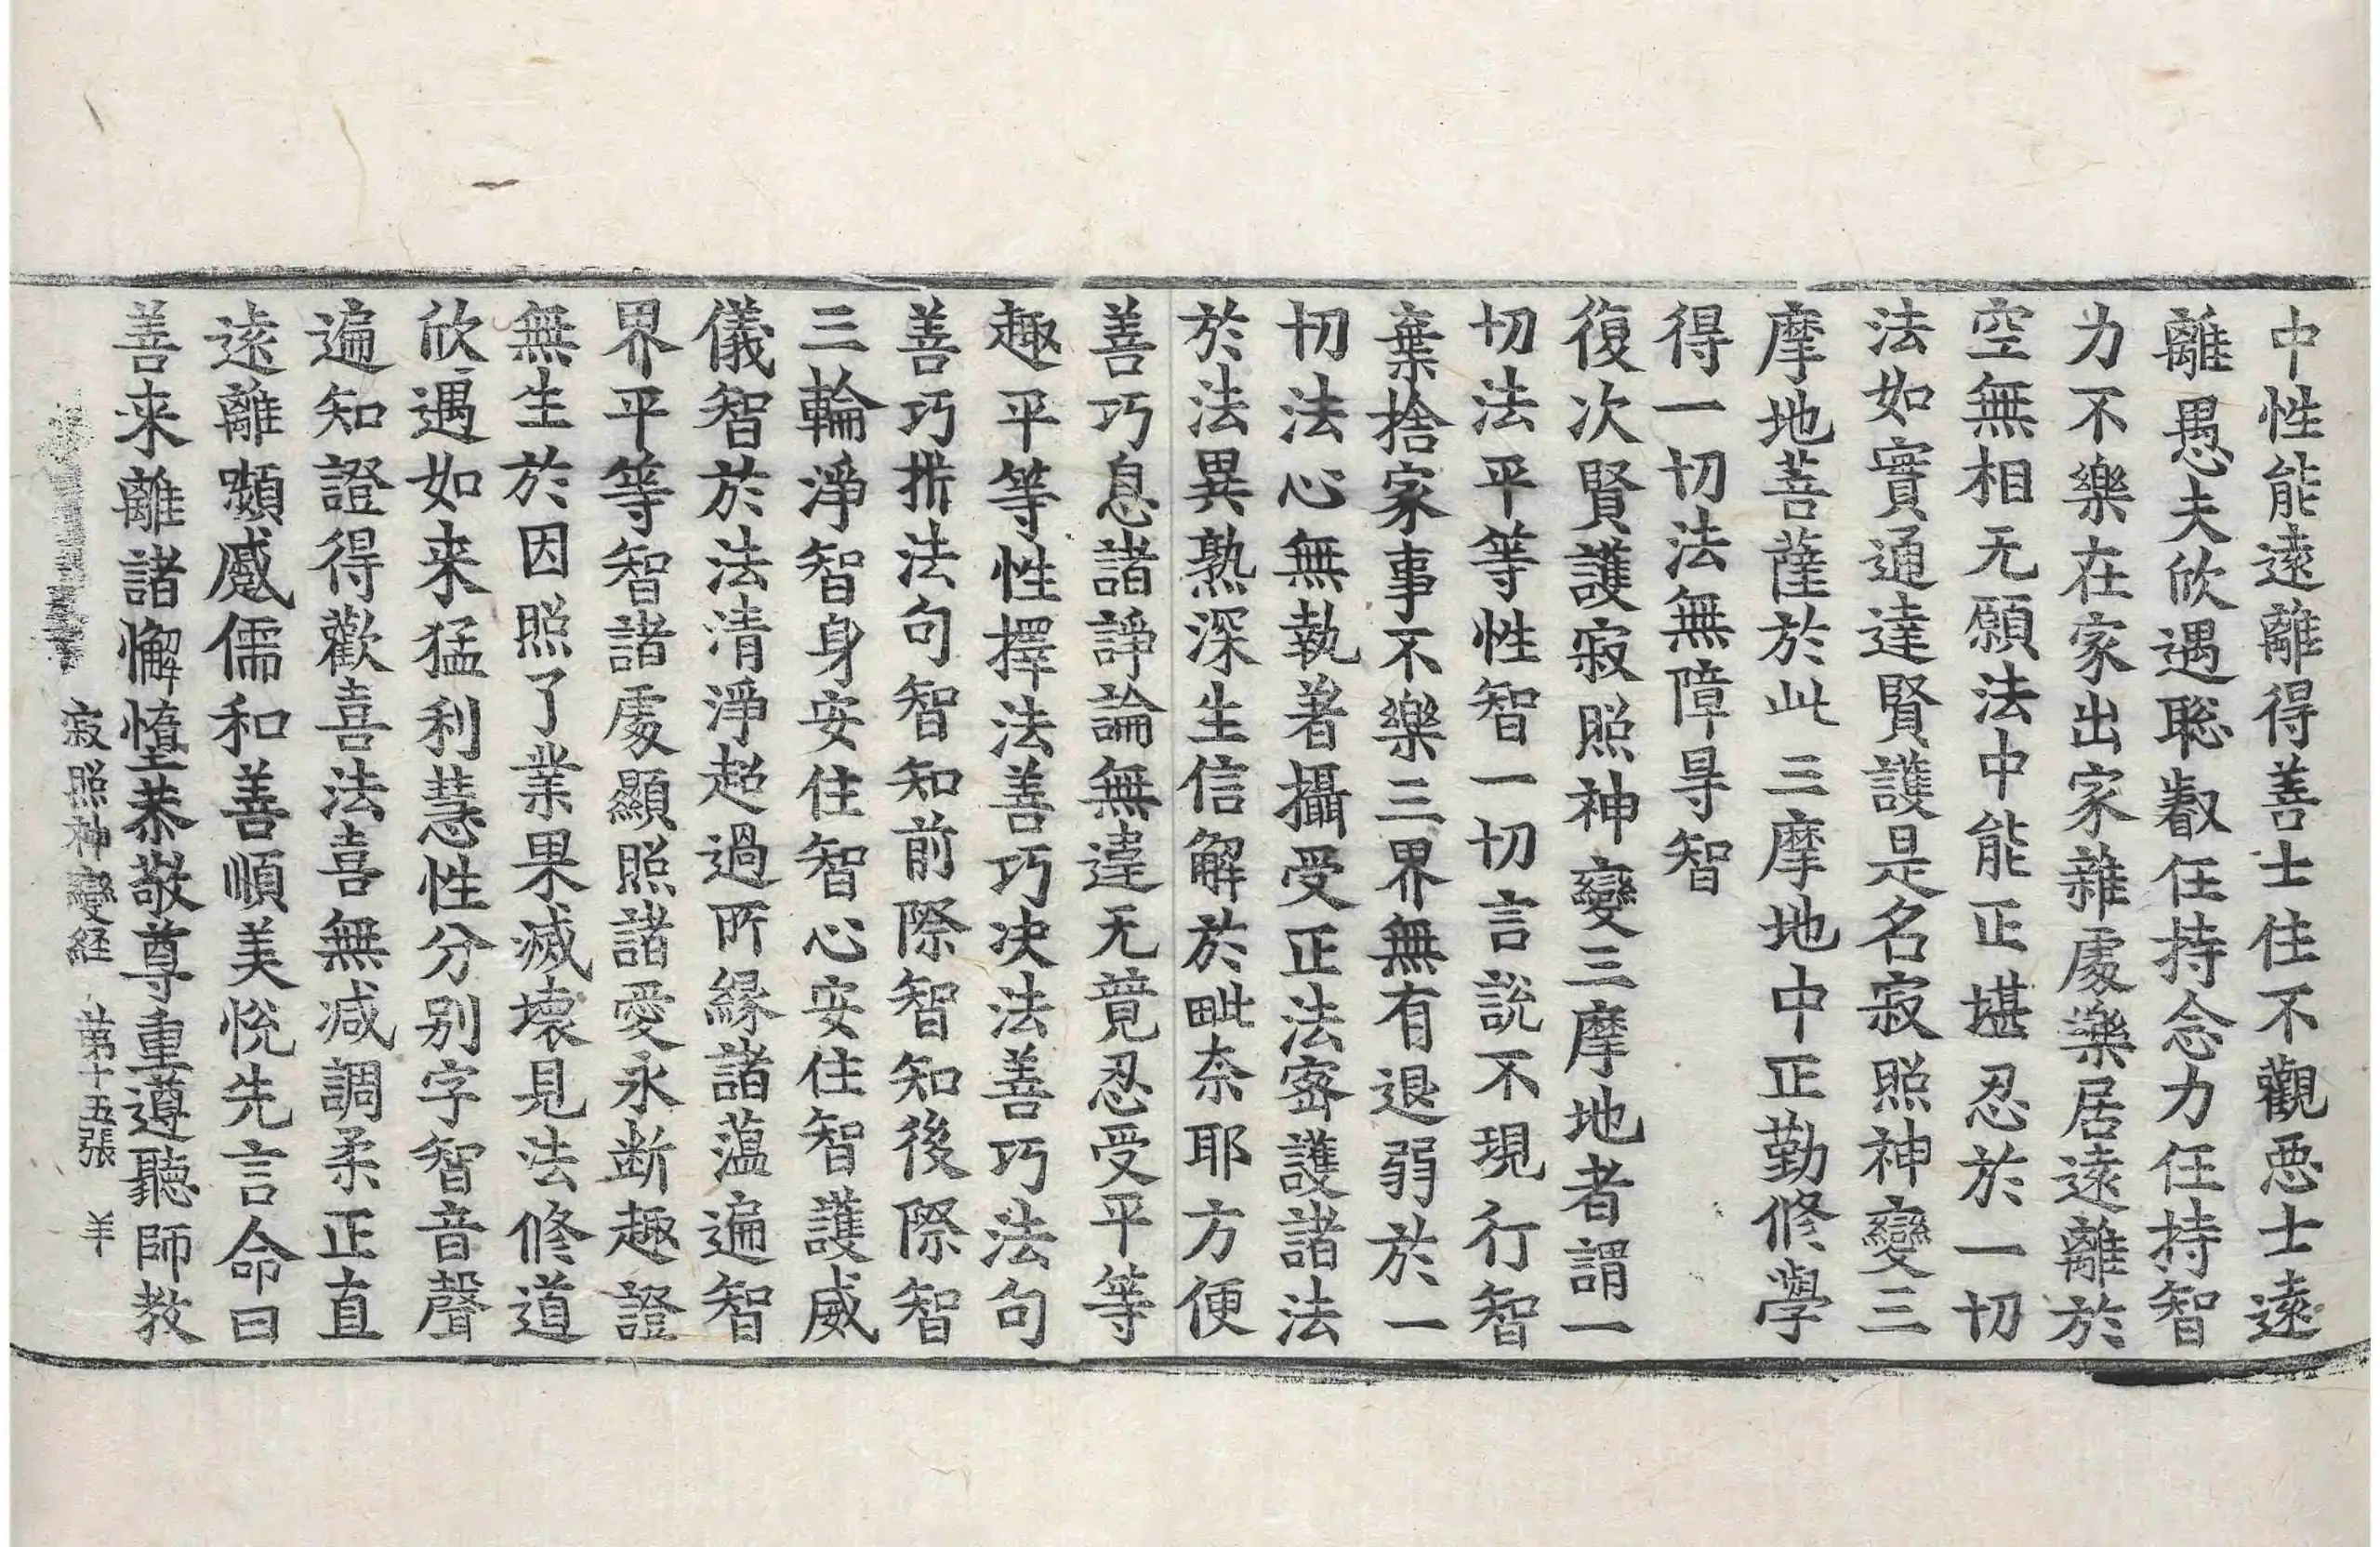 中性能遠離得善士住不觀惡士遠
離愚夫欣遇聡叡任持念力任持智
力不樂在家出家雜處樂居遠離於
空無相无願法中能正堪忍於一切
法如實通達賢護是名寂照神變三
摩地菩薩於此三摩地中正勤修學
得一切法無障㝵智
復次賢護寂照神變三摩地者謂一
切法平等性智一切言說不現行智
棄捨家事不樂三界無有退弱於一
切法心無執著攝受正法密護諸法
於法異熟深生信解於毗奈耶方便
善巧息諸諍論無違无競忍受平等
趣平等性擇法善巧決法善巧法句
善巧析法句智知前際智知後際智
三輪淨智身安住智心安住智護威
儀智於法清淨超過所緣諸蘊遍智
界平等智諸處顯照諸愛永断趣證
無生於因照了業果滅壞見法修道
欣遇如来猛利慧性分别字智音聲
遍知證得歡喜法喜無減調柔正直
遠離嚬蹙儒和善順美悅先言命曰
善来離諸懈惰恭敬尊重遵聽師教
寂照神變経 第十五張 羊